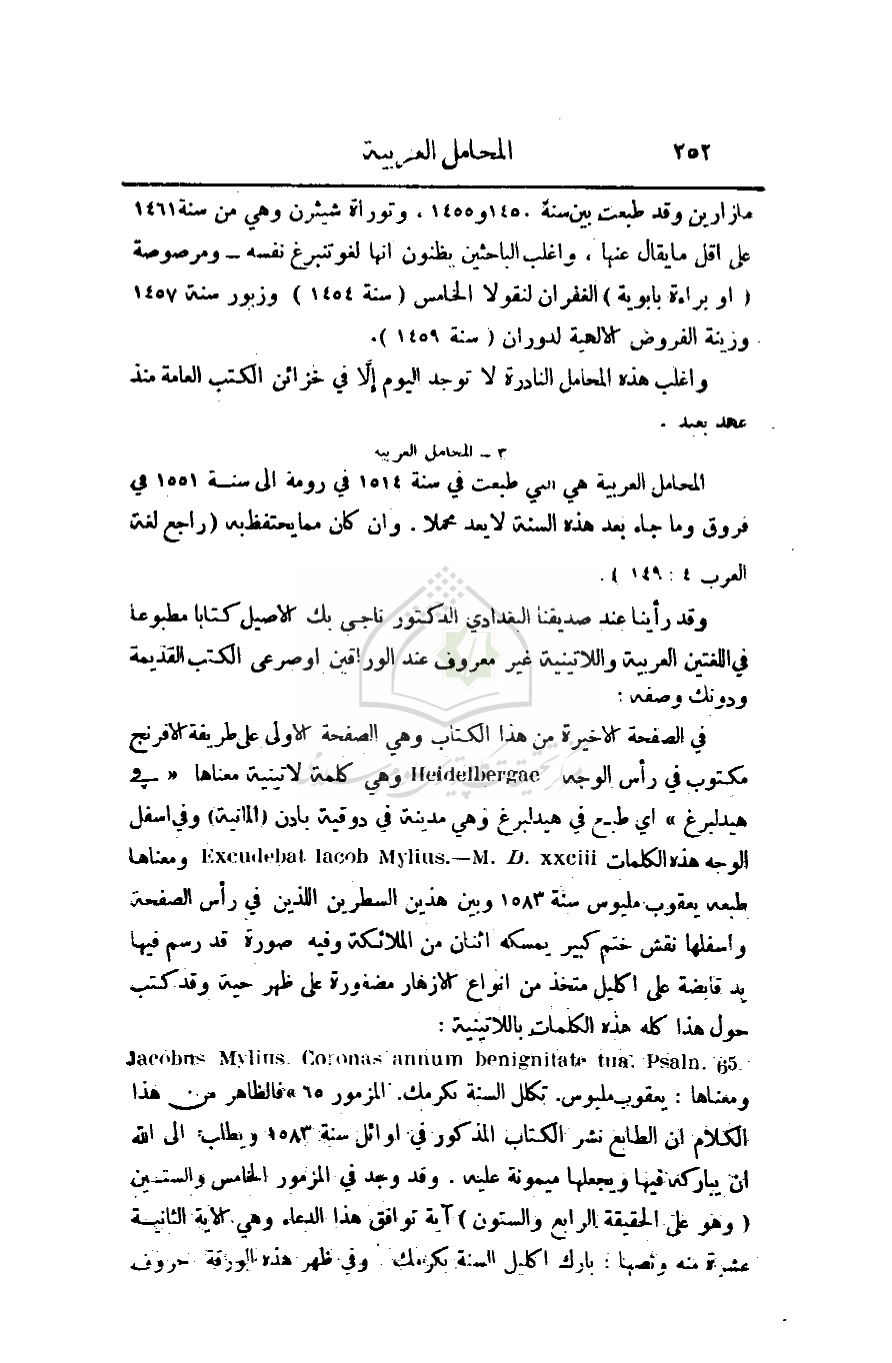 ٢٥٢ المحامل العربية
مازارين وقد طبعت بين سنة ١٤٥٠ و١٤٥٥ ، وتوراة شيثرن وهي من سنة ١٤٦١
على اقل مايقال عنها ، واغلب الباحثين يظنون انها لغوتنبرغ نفسه ــ ومرصوصة
( او براءة بابوية ) الغفران لنقولا الخامس ( سنة ١٤٥٤ ) وزبور سنة ١٤٥٧
وزينة الفروض الالهية لدوران ( سنة ١٤٥٩ ).
واغلب هذه المحامل النادرة لا توجد اليوم إلَّا في خزائن الكتب العامة منذ
عهد بعيد .
٣ ــ المحامل العربية
المحامل العربية هي التي طبعت في سنة ١٥١٤ في رومة الى سنة ١٥٥١ في
فروق وما جاء بعد هذه السنة لايعد محملا . وان كان مما يحتفظ به (راجع لغة
العرب ٤ : ١٤٩ ) .
وقد رأينا عند صديقنا البغدادي الدكتور ناجي بك الاصيل كتابا مطبوعا
في اللغتين العربية واللاتينية غير معروف عند الوراقين او صرعى الكتب القديمة
ودونك وصفه :
في الصفحة الاخيرة من هذا الكتاب وهي الصفحة الاولى على طريقة الافرنج
مكتوب في رأس الوجه Heidelbergae وهي كلمة لاتينية معناها « في
هيدلبرغ » اي طبع في هيدلبرغ وهي مدينة في دوقية بادن (المانية) وفي اسفل
الوجه هذه الكلمات Excudebat Iacob Mylius.—M. D. xxciii ومعناها
طبعه يعقوب مليوس سنة ١٥٨٣ وبين هذين السطرين اللذين في رأس الصفحة
واسفلها نقش ختم كبير يمسكه اثنان من الملائكة وفيه صورة قد رسم فيها
يد قابضة على اكليل متخذ من انواع الازهار مضفورة على ظهر حية وقد كتب
حول هذا كله هذه الكلمات باللاتينية :
Jacobus Mylius. Coronas annum benignitate tua. Psaln. 65.
ومعناها : يعقوب مليوس. تكلل السنة بكرمك. المزمور ٦٥ » فالظاهر من هذا
الكلام ان الطابع نشر الكتاب المذكور في اوائل سنة ١٥٨٣ ويطلب الى الله
ان يباركه فيها ويجعلها ميمونة عليه . وقد وجد في المزمور الخامس والستين
( وهو على الحقيقة الرابع والستون ) آية توافق هذا الدعاء وهي الاية الثانية
عشرة منه ونصها : بارك اكليل السنة بكرمك . وفي ظهر هذه الورقة حروف